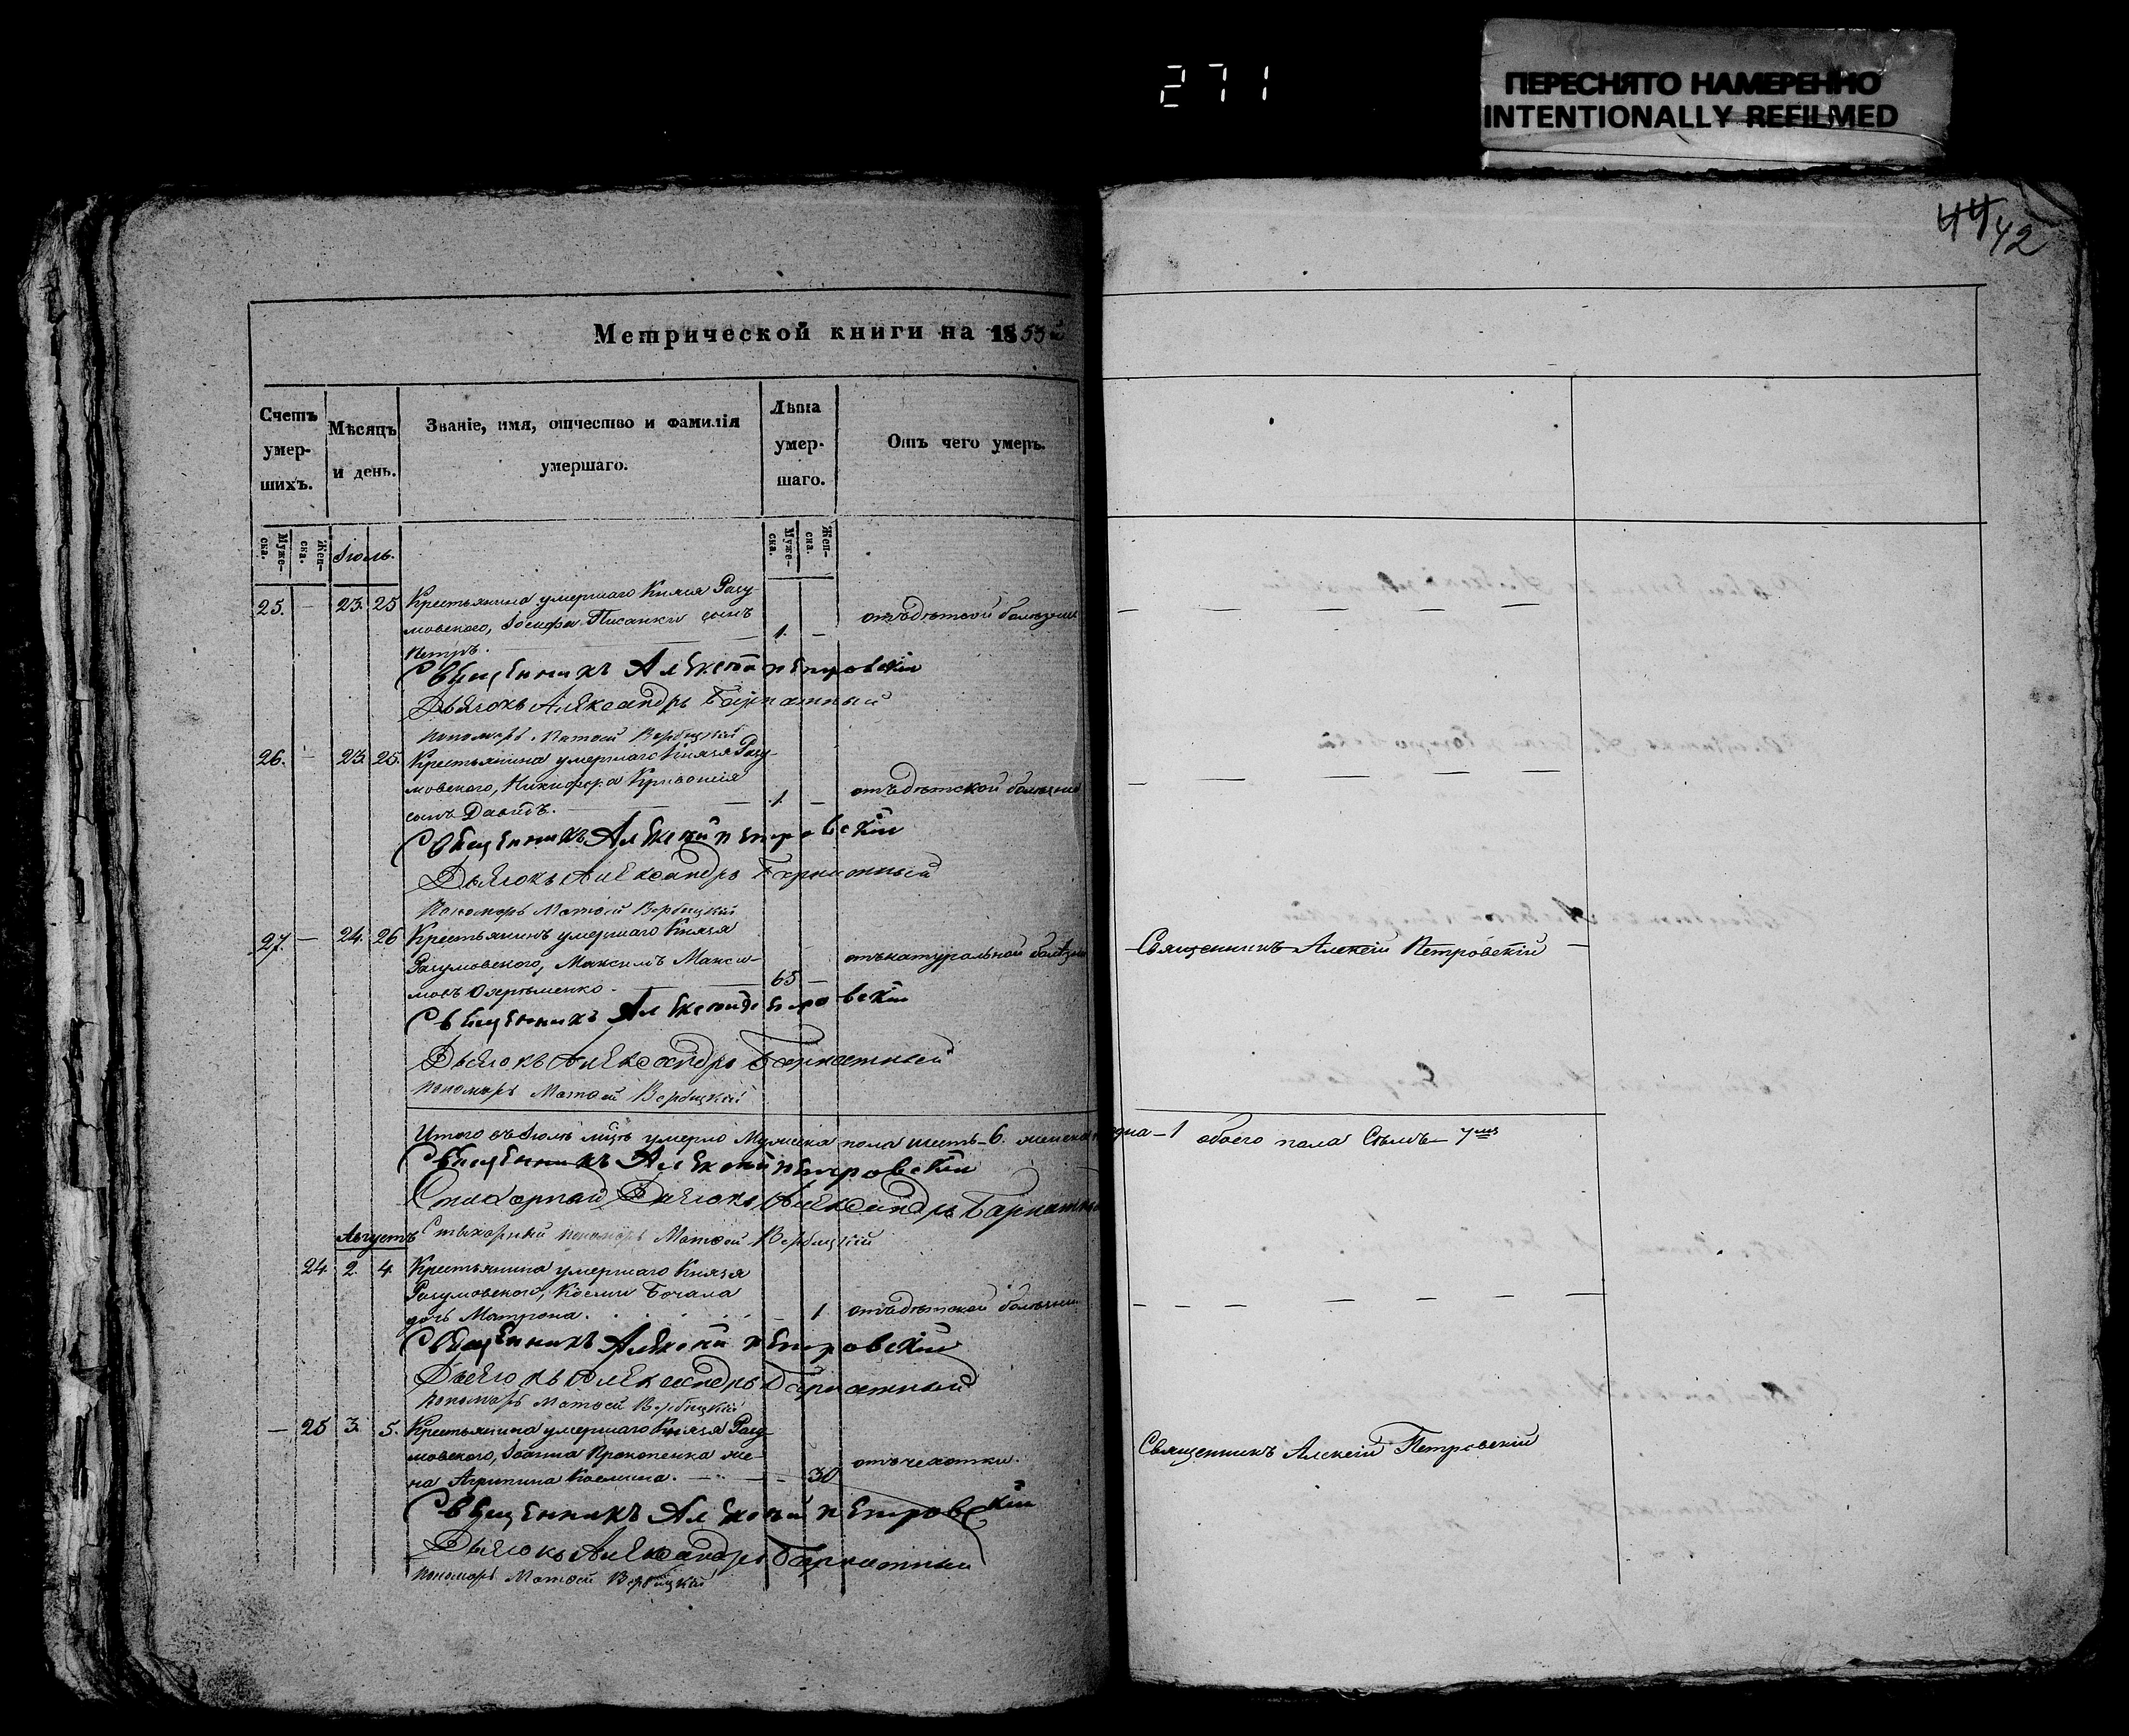 271
ПЕРЕСНЯТО НАМЕРЕННО
INTENTIONALLY REFILMED
44 42
Метрической книги на 1853й
Счетъ умер-шихъ.
Мѣсяцъ и день.
Званіе, имя, отчество и фамилія умершаго.
Лѣта умер-шаго.
Отъ чего умеръ.
Муже-ска. Жен-ска. Іюль. Муже-ска. Жен-ска.
25. — 23. 25 Крестьянина умершаго Князя Разу-
мовскаго, Іосифа Писанки сынъ отъ дѣтской болѣзни
Петръ. — 1. —
Священникъ Алексѣй Петровскій
Дьячокъ Александръ
Пономарь Матѳей Вербицкій
26. — 23. 25. Крестьянина умершаго Князя Разу-
мовскаго, Никифора Кривошія отъ дѣтской болѣзни
сынъ Давидъ. — 1. —
Священникъ Алексѣй Петровскій
Дьячокъ Александръ
Пономарь Матѳей Вербицкій
27. — 24. 26 Крестьянинъ умершаго Князя
Разумовскаго, Максимъ Макси- отъ натуральной болѣзни Священникъ Алексій Петровскій —
мовъ — 65 —
Священникъ Алексѣй Петровскій
Дьячокъ Александръ
Пономарь Матѳей Вербицкій
Итого въ Іюлѣ мцѣ умерло Мужеска пола шесть – 6. женска одна – 1 обоего пола Семь – 7мъ
Священникъ Алексѣй Петровскій
Стихарный Дьячокъ Александръ
Августъ Стихарный пономарь Матѳей Вербицкій
24 2. 4 Крестьянина умершаго Князя
Разумовскаго, Космы Бочала
дочь Матрона. — 1 отъ дѣтской болѣзни
Священникъ Алексѣй Петровскій
Дьячокъ Александръ
Пономарь Матѳей Вербицкій
— 25 3. 5. Крестьянина умершаго Князя Разу-
мовскаго, Іоанна Прокопенка же- отъ чахотки. Священникъ Алексій Петровскій
на Агрипина Космина. — 30
Священникъ Алексѣй Петровскій
Дьячокъ Александръ
Пономарь Матѳей Вербицкій